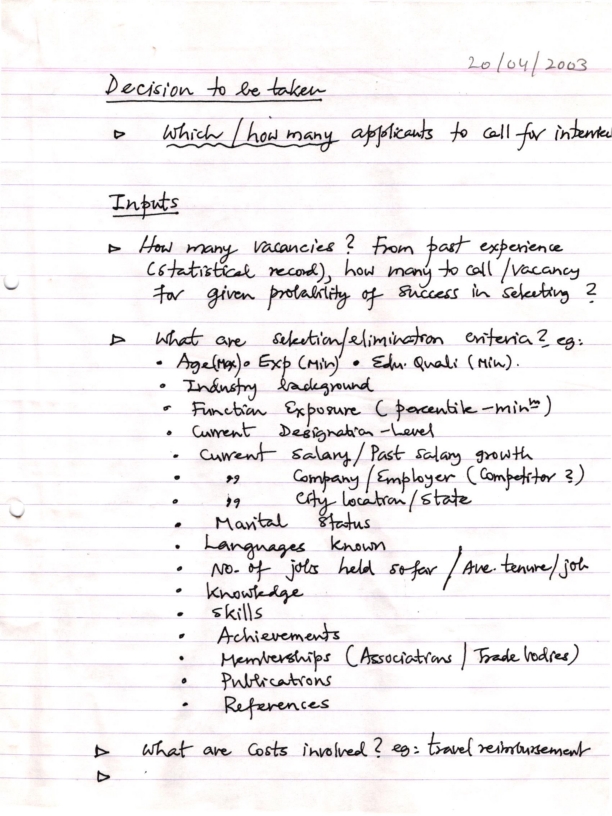 20/04/2003
Decision to be taken
▷ Which / how many applicants to call for interview
Inputs
▷ How many vacancies? From past experience
(statistical record), how many to call / vacancy
for given probability of success in selecting?
▷ What are selection/elimination criteria? eg:
• Age (Max) • Exp (Min) • Edu. Quali (Min).
• Industry background
• Function Exposure (percentile - minm)
• Current Designation - Level
• Current Salary / Past salary growth
• " Company / Employer (Competitor?)
• " City location / State
• Marital Status
• Languages known
• No. of jobs held so far / Ave. tenure / job
• Knowledge
• Skills
• Achievements
• Memberships (Associations / Trade bodies)
• Publications
• References
▷ What are costs involved? eg: travel reimbursement
▷